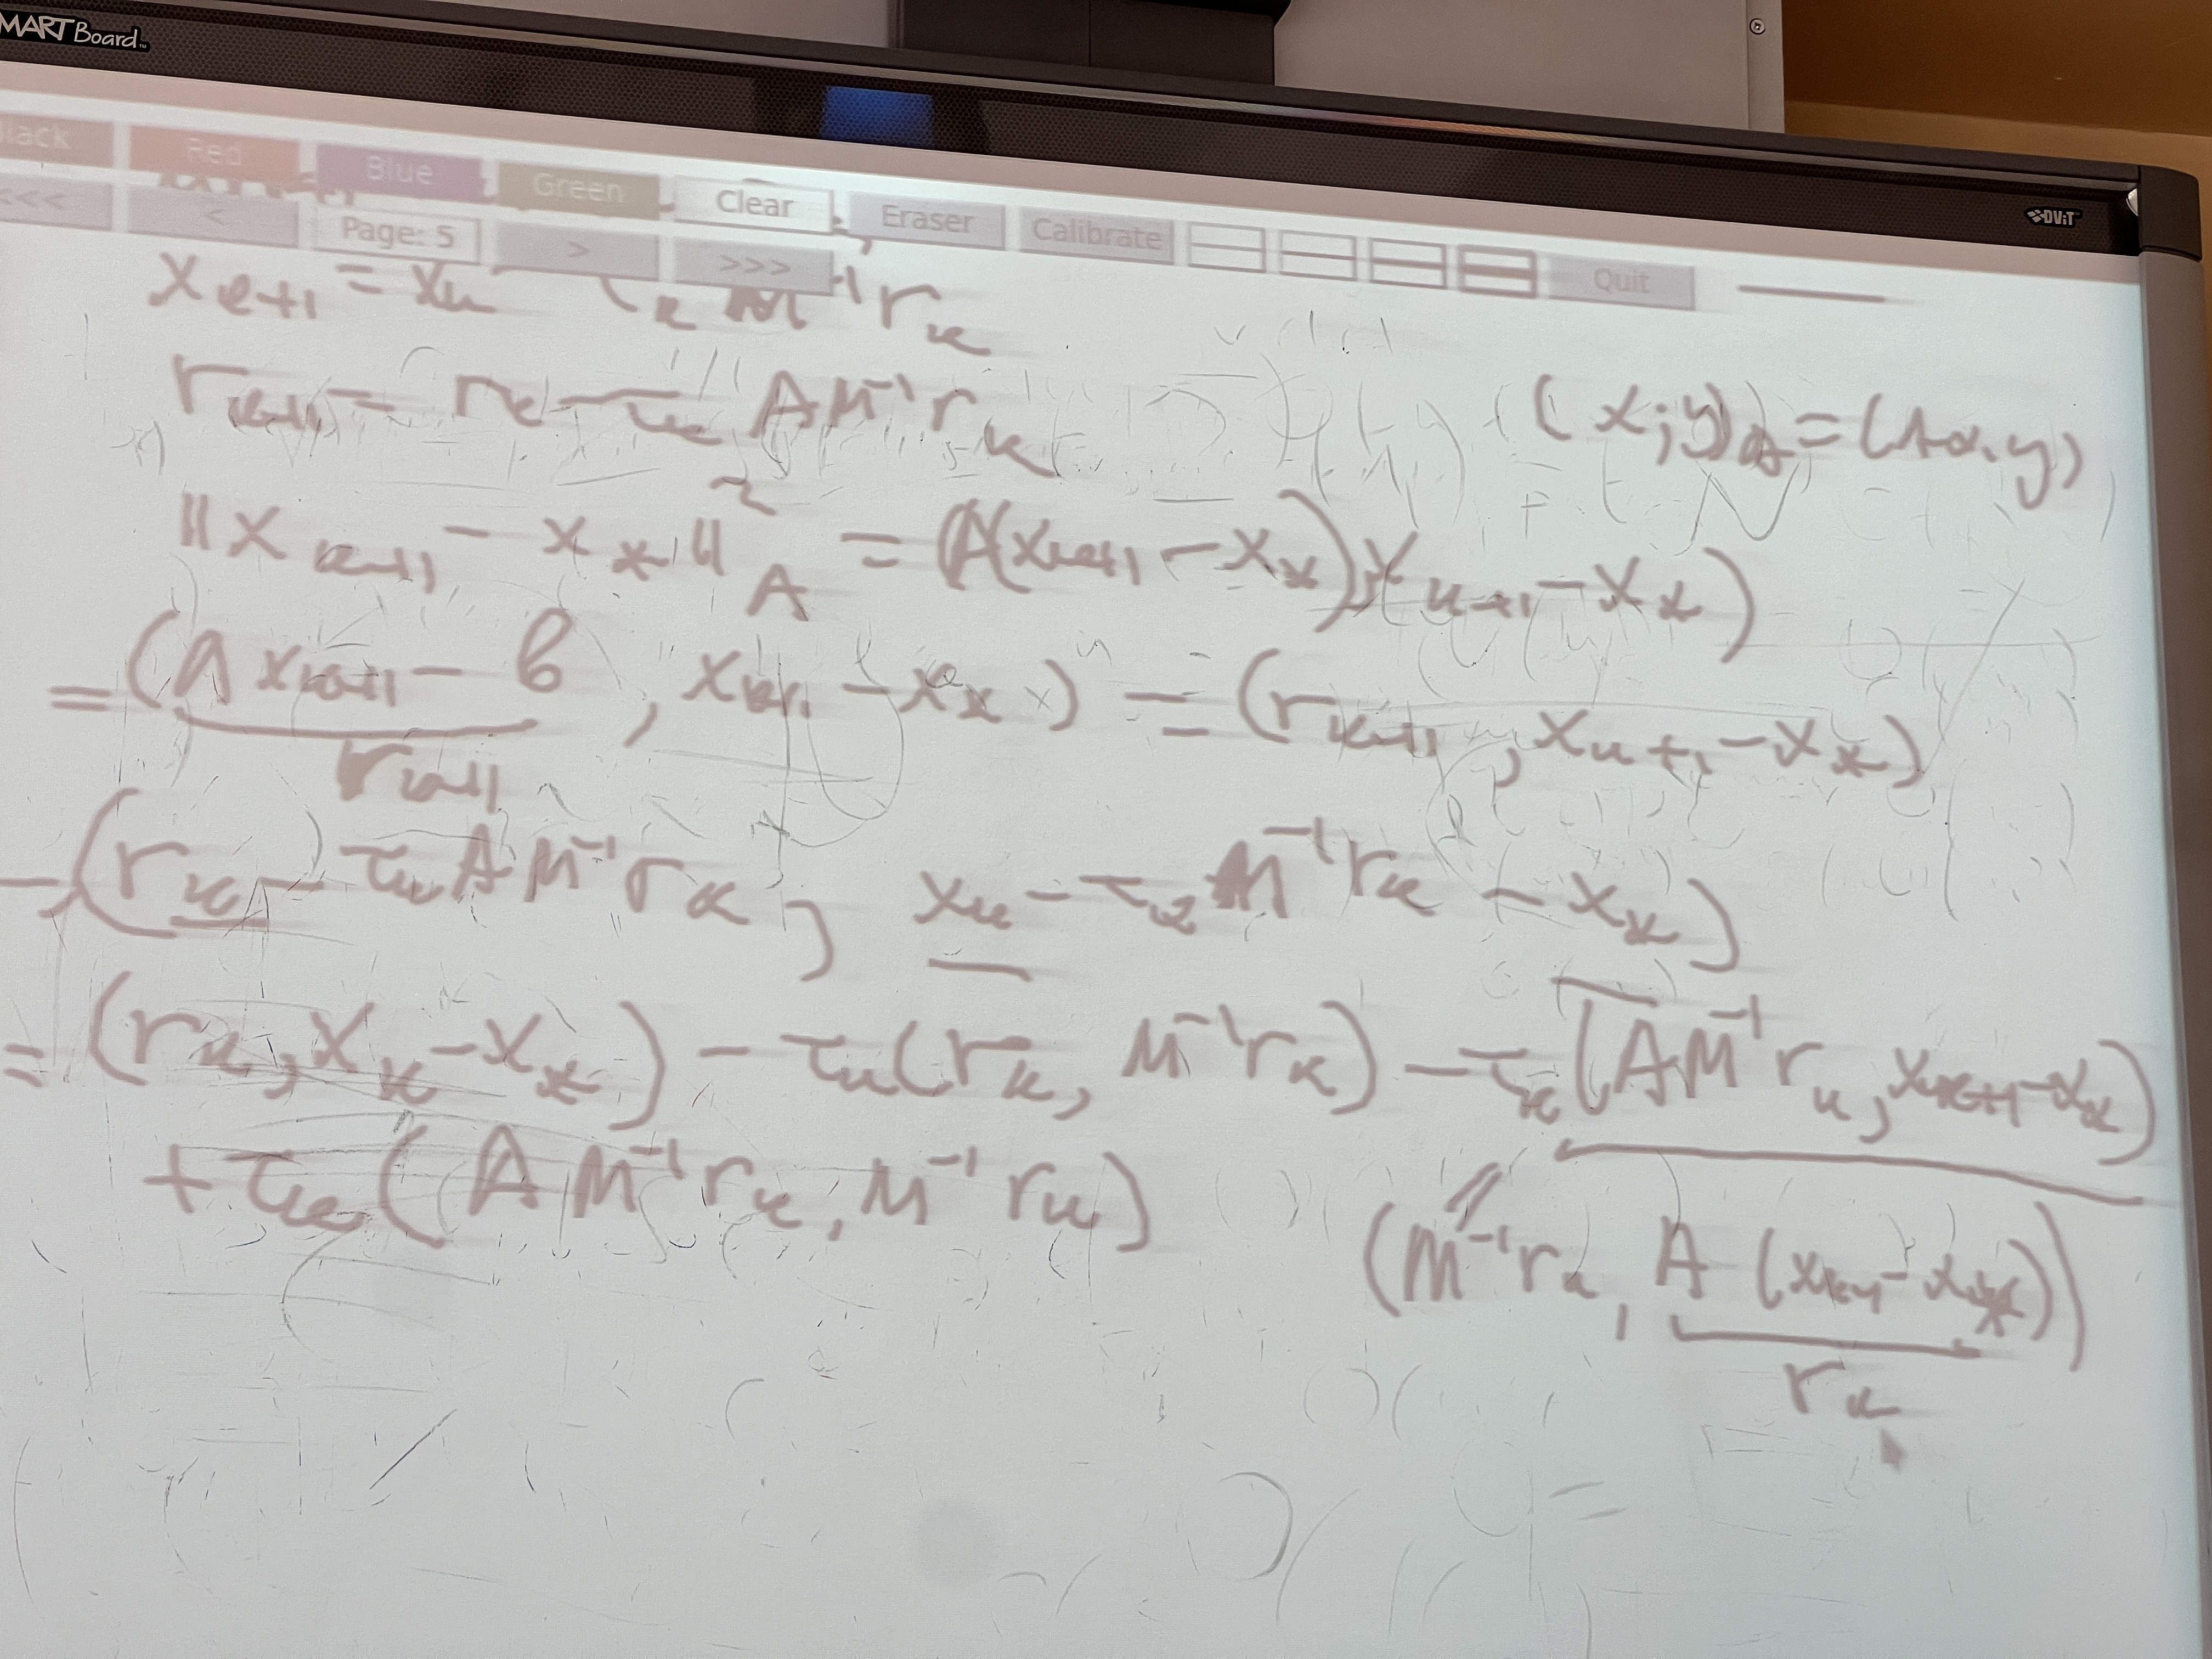 SMART Board
DViT
Black Red Blue Green Clear Eraser Calibrate Quit
<<< < Page: 5 > >>>
x_{k+1} = x_k - τ_k M^{-1} r_k
r_{k+1} = r_k - τ_k A M^{-1} r_k
(x; y)_A = (Ax, y)
‖x_{k+1} - x_*‖²_A = (A(x_{k+1} - x_*), x_{k+1} - x_*)
= (A x_{k+1} - b, x_{k+1} - x_*) = (r_{k+1}, x_{k+1} - x_*)
r_{k+1}
= (r_k - τ_k A M^{-1} r_k, x_k - τ_k M^{-1} r_k - x_*)
= (r_k, x_k - x_*) - τ_k (r_k, M^{-1} r_k) - τ_k (A M^{-1} r_k, x_{k+1} - x_*)
+ τ_k (A M^{-1} r_k, M^{-1} r_k)
(M^{-1} r_k, A (x_{k+1} - x_*))
r_k